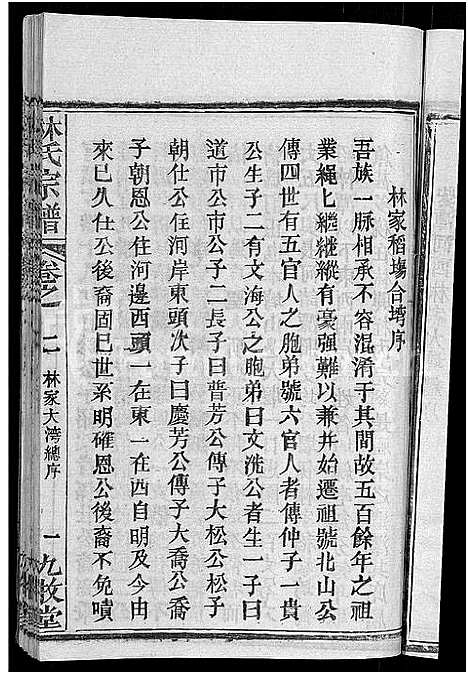 林家稻場合塆序
吾族一脉相承不容混淆于其間故五百餘年之祖
業繩匕繼繼縱有豪强難以兼并始遷祖號北山公
傳四世有五官人之胞弟號六官人者傳仲子一貴
公生子二有文海公之胞弟曰文洗公者生一子曰
道市公市公子二長子曰普芳公傳子大松公松子
朝仕公住河岸東頭次子曰慶芳公傳子大喬公喬
子朝恩公住河邊西頭一在東一在西自明及今由
來已久仕公後裔固巳世系明確恩公後裔不免嘖
林氏宗譜
卷之二
林家大湾總序
一
九牧堂